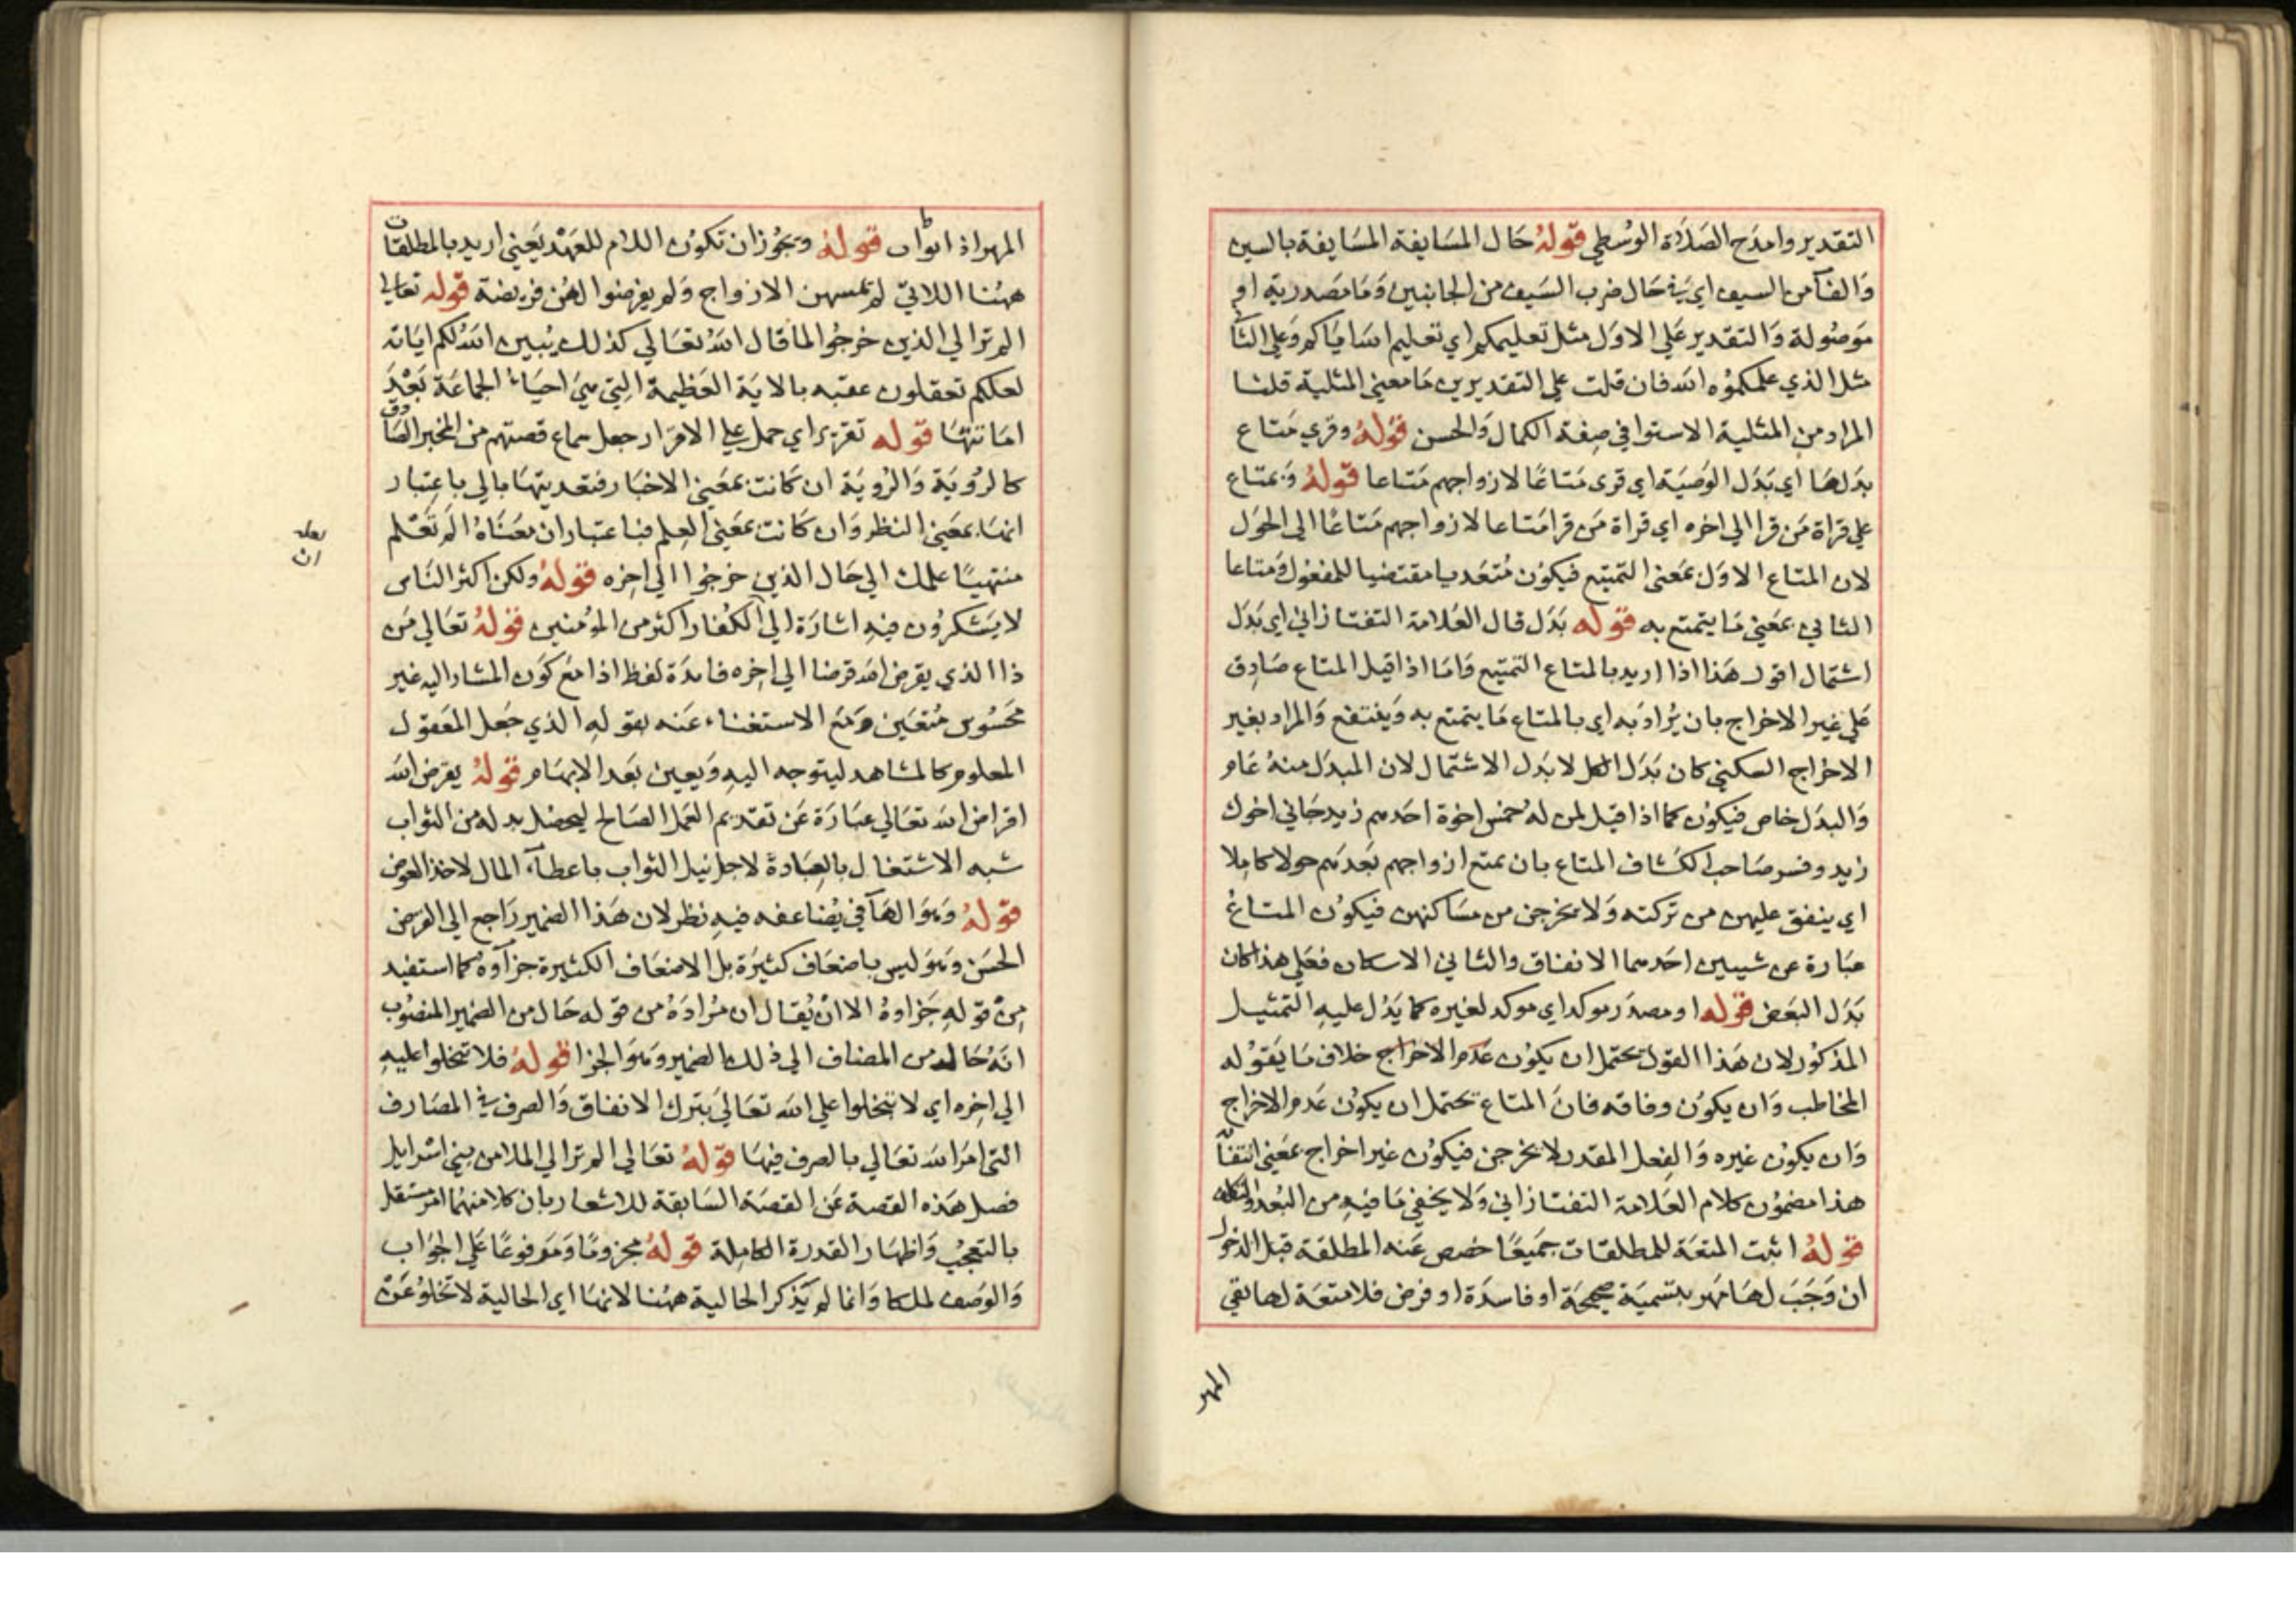 التقدير وامدح الصلاة الوسطي قوله حال المسايفة المسايفة بالسين
والفآ من السيف اي في حال ضرب السيف من الجانبين وما مصدرية او
موصولة والتقدير علي الاول مثل تعليمكم اي تعليم اساميكم وعلي الثا
مثل الذي علمكموه الله فان قلت علي التقديرين ما معني المثلية قلنا
المراد من المثلية الاستوا في صفة الكمال والحسن قوله وقري متاع
بدلها اي بدل الوصية اي قرى متاعا لازواجهم متاعا قوله وبمتاع
علي قراة من قرا الي اخره اي قراة من قرا متاعا لازواجهم متاعا الي الحول
لان المتاع الاول بمعنى التمتيع فيكون متعديا مقتضيا للمفعول ومتاعا
الثاني بمعني ما يتمتع به قوله بدل قال العلامة التفتازاني اي بدل
اشتمال اقول هذا اذا اريد بالمتاع التمتيع واما اذا قيل المتاع صادق
علي غير الاخراج بان يراد به اي بالمتاع ما يتمتع به وينتفع والمراد بغير
الاخراج السكني كان بدل الكل لا بدل الاشتمال لان المبدل منه عام
والبدل خاص فيكون كما اذا قيل لمن له خمس اخوة احدهم زيد جاني اخوك
زيد وفسر صاحب الكشاف المتاع بان تمتع ازواجهم بعدهم حولا كاملا
اي ينفق عليهن من تركته ولا يخرجن من مساكنهن فيكون المتاع
عبارة عن شيين احدهما الانفاق والثاني الاسكان فعلي هذا كان
بدل البعض قوله او مصدر موكد اي موكد لغيره كما يدل عليه التمثيل
المذكور لان هذا القول يحتمل ان يكون عدم الاخراج خلاف ما يقوله
المخاطب وان يكون وفاقه فان المتاع يحتمل ان يكون عدم الاخراج
وان يكون غيره والفعل المقدر لا يخرجن فيكون غير اخراج بمعني انتفآ
هذا مضمون كلام العلامة التفتازاني ولا يخفي ما فيه من البعد والتكلف
قوله اثبت المتعة للمطلقات جميعا خصص عنه المطلقة قبل الدخول
ان وجب لها مهر بتسمية صحيحة او فاسدة او فرض فلا متعة لها بقي
المهر
المهر اذ قوله ويجوز ان تكون اللام للعهد يعني اريد بالمطلقات
ههنا اللاتي لم تمسهن الازواج ولم يفرضوا لهن فريضة قوله تعالي
الم تر الي الذين خرجوا لما قال الله تعالي كذلك يبين الله لكم اياته
لعلكم تعقلون عقبه بالاية العظيمة التي هي احياء الجماعة بعد
اماتتها قوله تقرير اي حمل علي الاقرار جعل سماع قصتهم من المخبر الصادق
كالروية والروية ان كانت بمعني الاخبار فتعديتها بالي باعتبار
انها بمعني النظر وان كانت بمعني العلم فباعتبار ان معناه الم تعلم
لعله
ان
منتهيا علمك الي حال الذين خرجوا الي اخره قوله ولكن اكثر الناس
لا يشكرون فيه اشارة الي ان الكفار اكثر من المؤمنين قوله تعالي من
ذا الذي يقرض الله قرضا الي اخره فايدة لفظ اذا مع كون المشار اليه غير
محسوس متعين ومع الاستغناء عنه بقوله الذي جعل المعقول
المعلوم كالمشاهد ليتوجه اليه ويعين بعد الابهام قوله يقرض الله
اقراض الله تعالي عبارة عن تقديم العمل الصالح ليحصل بدله من الثواب
شبه الاشتغال بالعبادة لاجل نيل الثواب باعطآء المال لاخذ العوض
قوله وهو الهآ في يضاعفه فيه نظر لان هذا الضمير راجع الي القرض
الحسن وهو ليس باضعاف كثيرة بل الاضعاف الكثيرة جزآوه كما استفيد
من قوله جزاوه الا ان يقال ان مراده من قوله حال من الضمير المنصوب
انه حال من المضاف الي ذلك الضمير وهو الجزا قوله فلا تبخلوا عليه
الي اخره اي لا تبخلوا علي الله تعالي بترك الانفاق والصرف في المصارف
التي امر الله تعالي بالصرف فيها قوله تعالي الم تر الي الملا من بني اسرايل
فصل هذه القصة عن القصة السابقة للاشعار بان كلا منهما امر مستقل
بالتعجب واظهار القدرة الكاملة قوله مجزوما ومرفوعا علي الجواب
والوصف لملكا وانما لم يذكر الحالية ههنا لانها اي الحالية لا تخلو عن